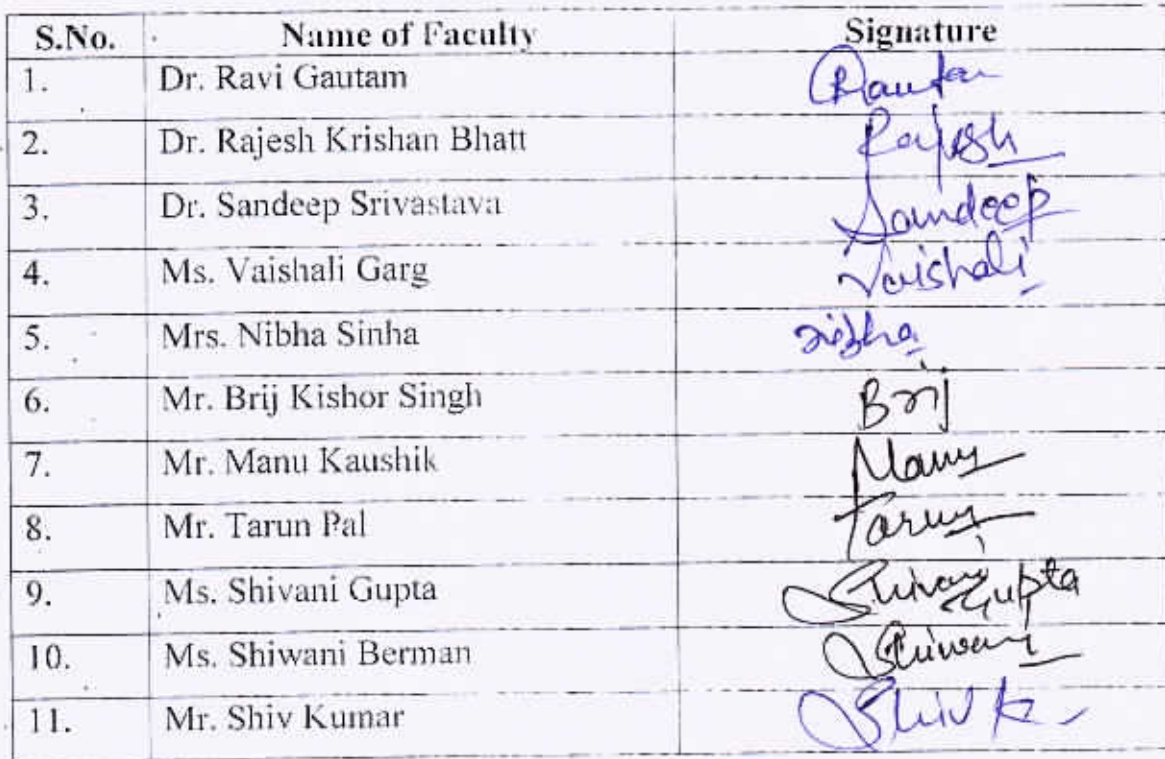 S.No. Name of Faculty Signature
1. Dr. Ravi Gautam Rautam
2. Dr. Rajesh Krishan Bhatt Rajesh
3. Dr. Sandeep Srivastava Sandeep
4. Ms. Vaishali Garg Vaishali
5. Mrs. Nibha Sinha Nibha
6. Mr. Brij Kishor Singh Brij
7. Mr. Manu Kaushik Manu
8. Mr. Tarun Pal Tarun
9. Ms. Shivani Gupta Shivani Gupta
10. Ms. Shiwani Berman Shiwani
11. Mr. Shiv Kumar Shiv K